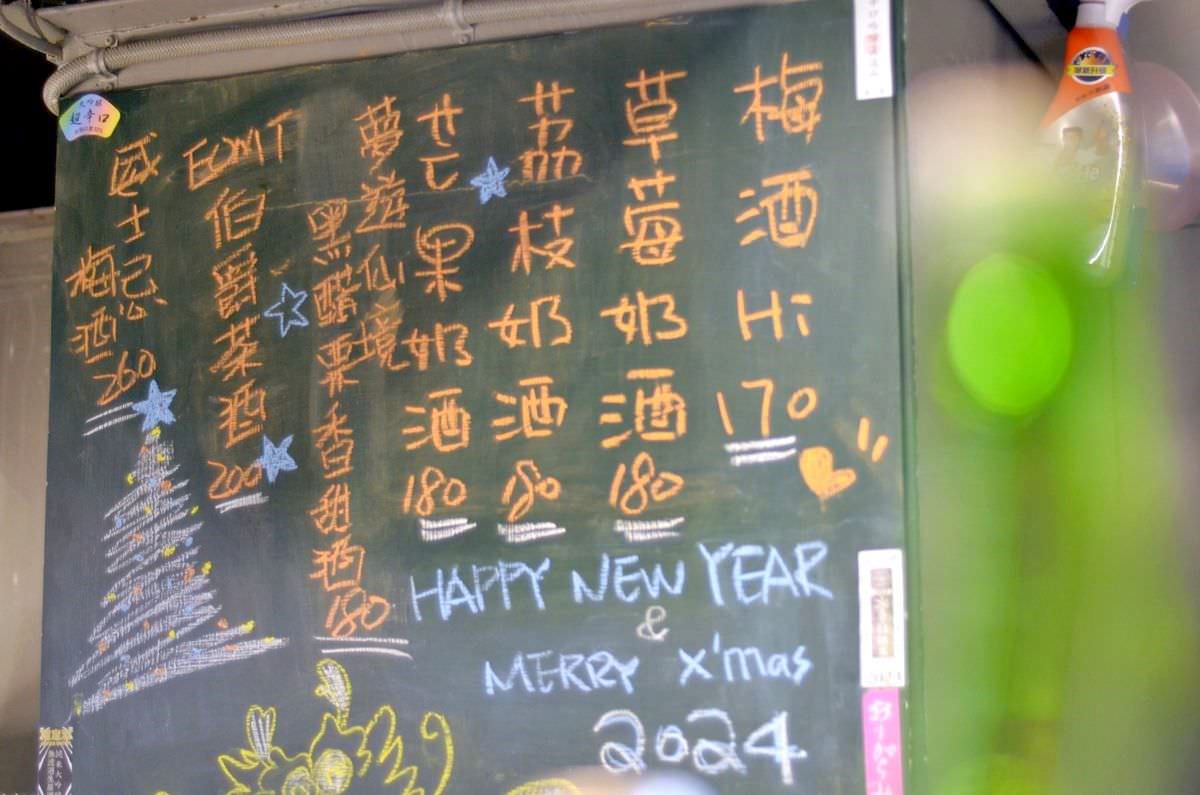 梅酒Hi 170
草莓奶酒 180
荔枝奶酒 180
芒果奶酒 180
夢遊仙境
黑醋栗香甜酒 180
EOMT
伯爵茶酒 200
威士忌
梅酒 260
HAPPY NEW YEAR
&
MERRY X'mas
2024
大吟醸
超辛口